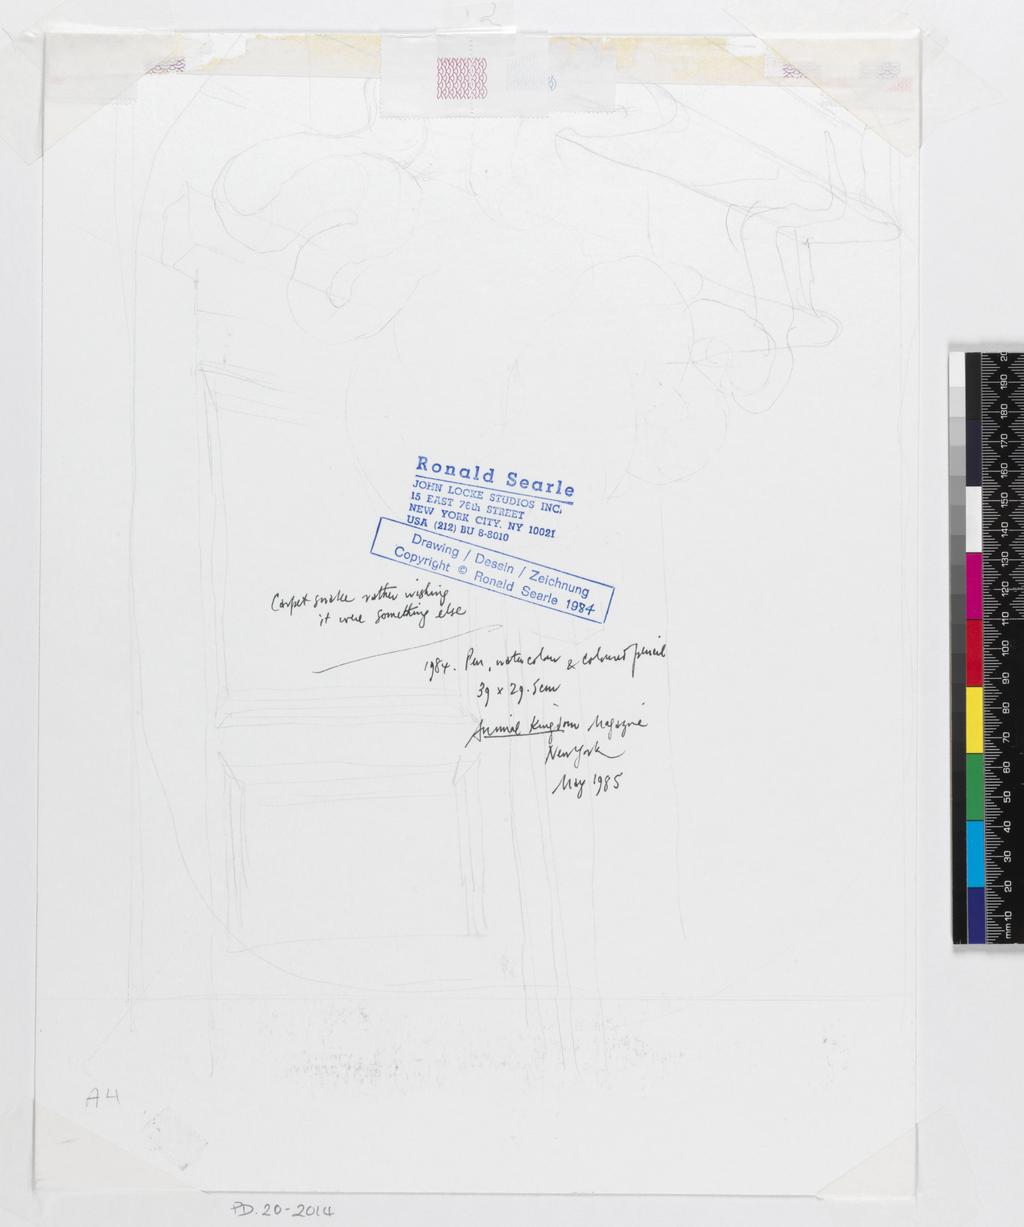 Ronald Searle
JOHN LOCKE STUDIOS INC.
15 EAST 76th STREET
NEW YORK CITY, NY 10021
USA (212) BU 8-8010
Drawing / Dessin / Zeichnung
Copyright © Ronald Searle 1984
Carpet snake rather wishing
it were something else
1984. Pen, watercolour & coloured pencil
39 x 29.5cm
Animal Kingdom Magazine
New York
May 1985
A4
PD.20-2014
mm 10 20 30 40 50 60 70 80 90 100 110 120 130 140 150 160 170 180 190